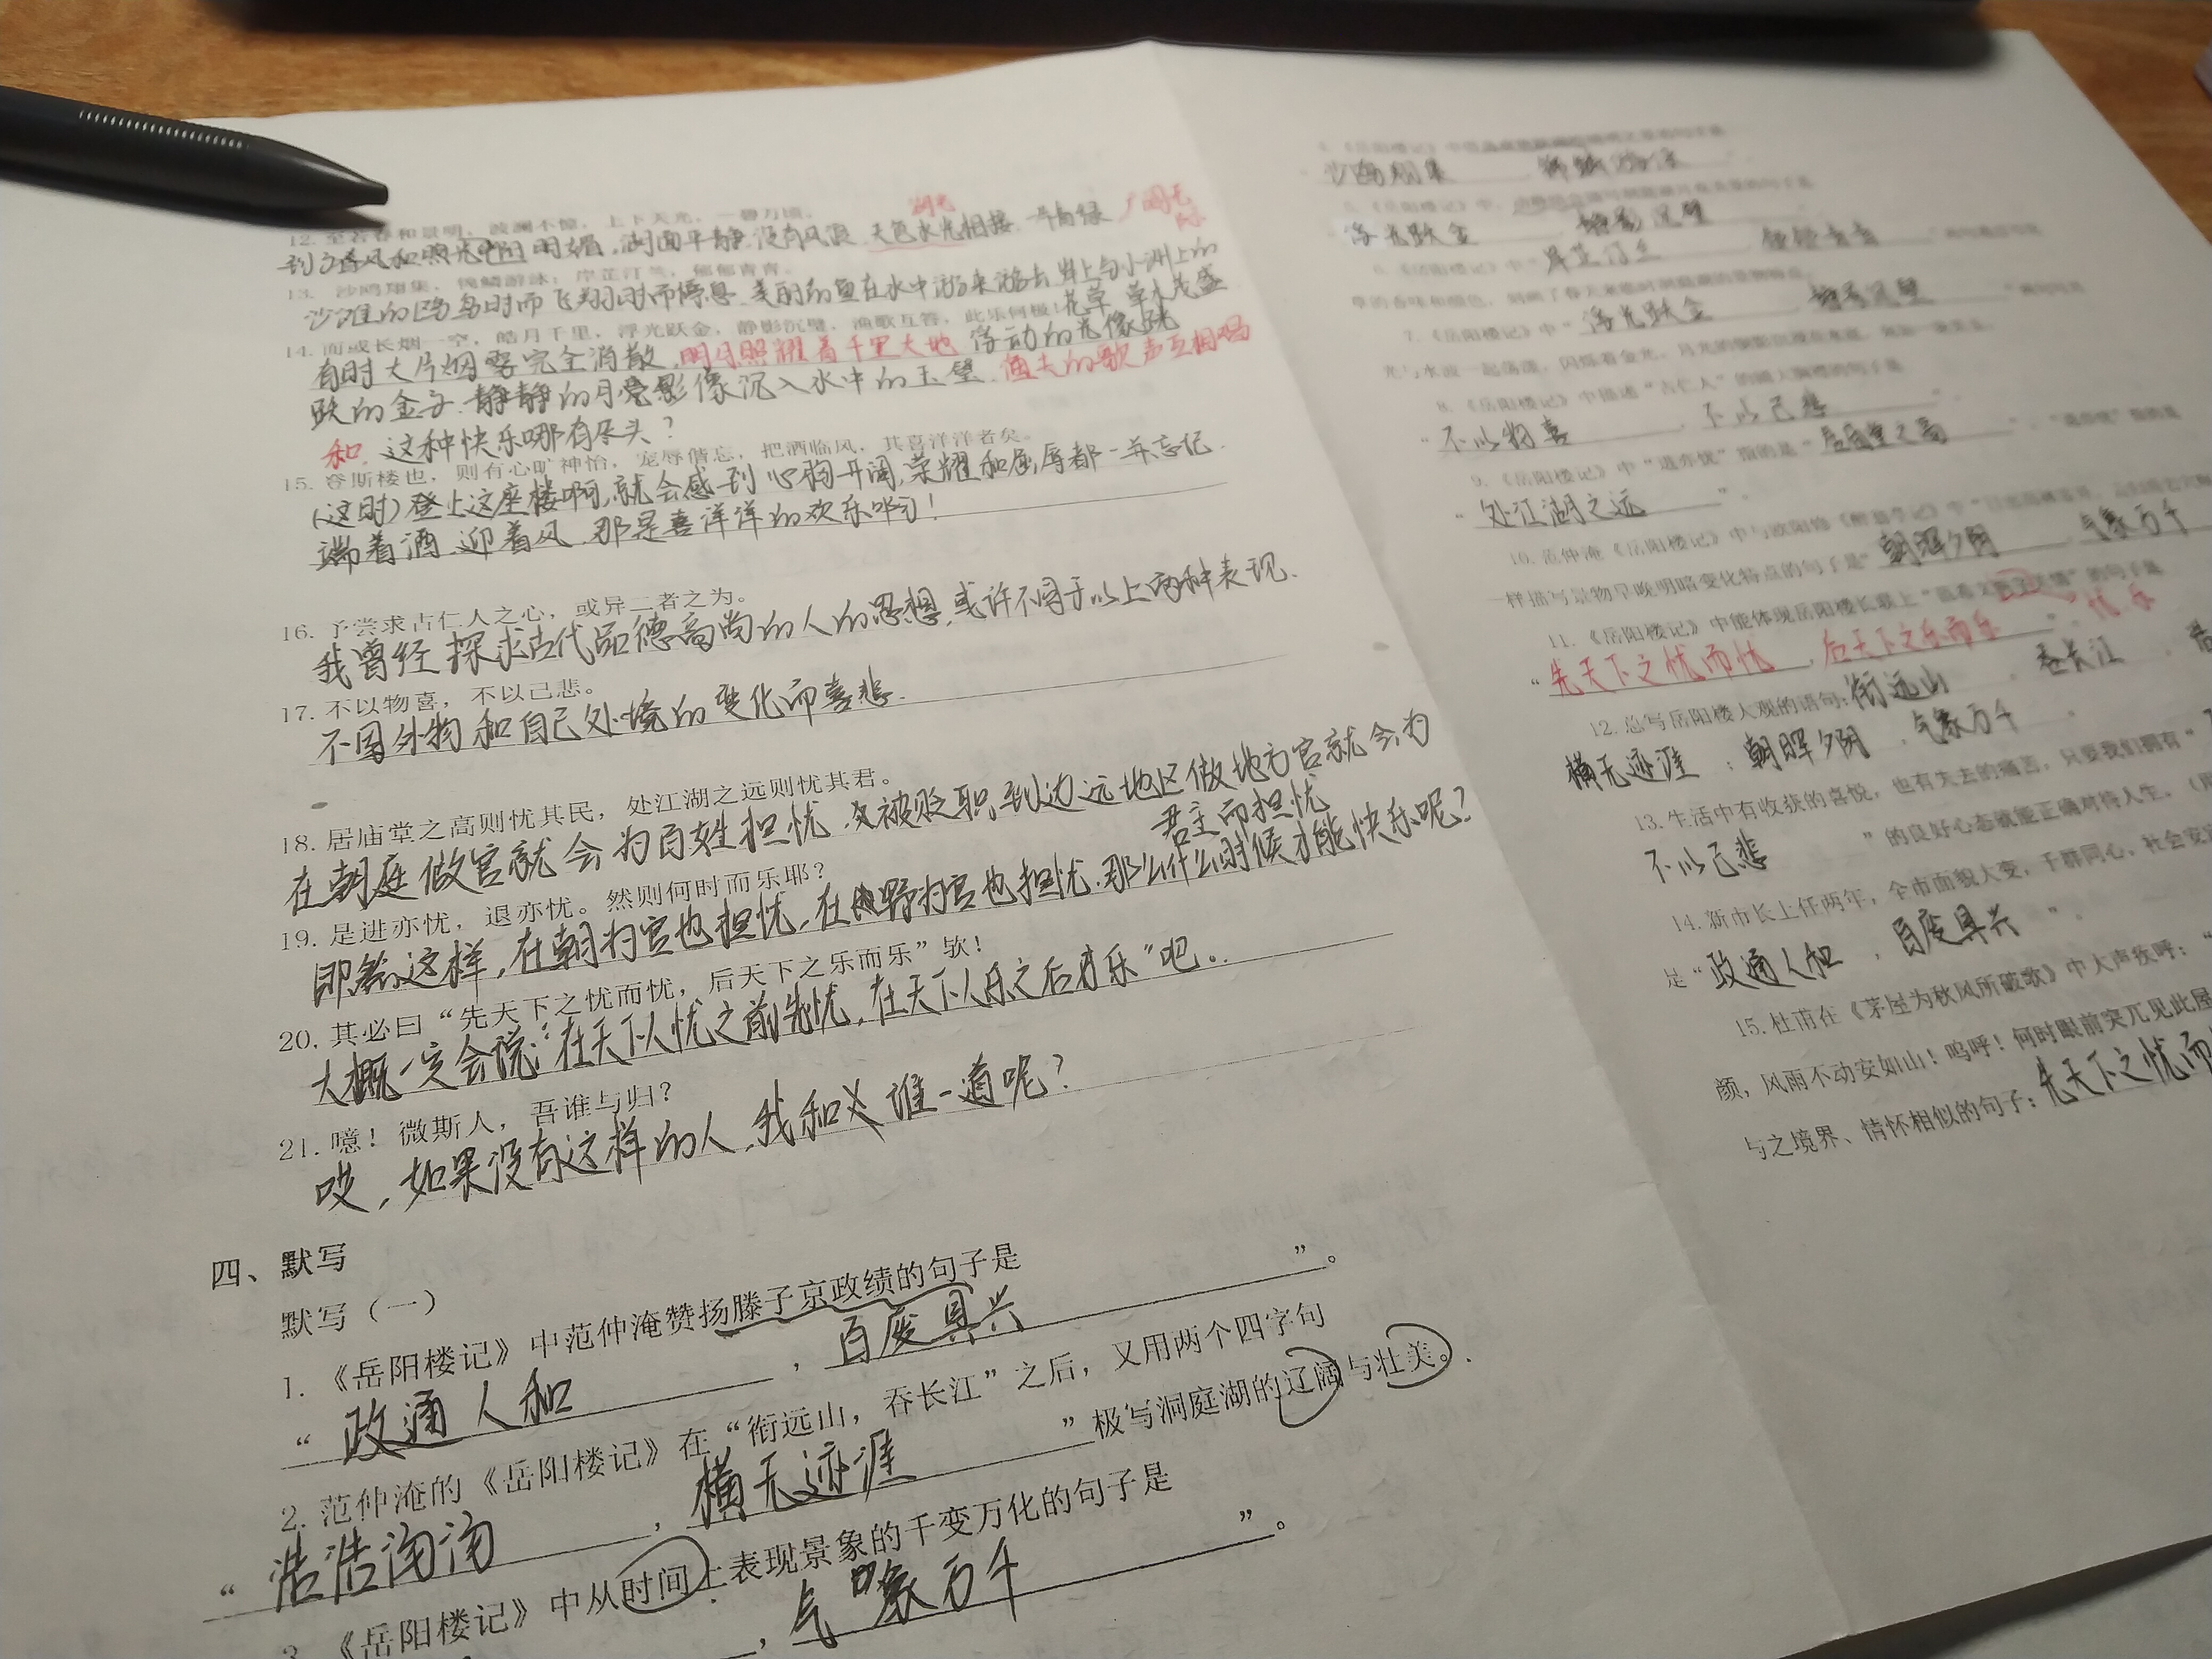 12. 至若春和景明，波澜不惊，上下天光，一碧万顷。
湖光 广阔无际
到了春风和煦，阳光明媚，湖面平静，没有风浪，天色水光相接，一片碧绿
13. 沙鸥翔集，锦鳞游泳；岸芷汀兰，郁郁青青。
沙洲的鸥鸟时而飞翔，时而停息，美丽的鱼在水中游来游去，岸上与小洲上的
花草，草木茂盛
14. 而或长烟一空，皓月千里，浮光跃金，静影沉璧，渔歌互答，此乐何极！
有时大片烟雾完全消散，明月照耀着千里大地，浮动的光像跳
跃的金子，静静的月亮影像沉入水中的玉璧，渔夫的歌声互相唱
和，这种快乐哪有尽头？
15. 登斯楼也，则有心旷神怡，宠辱偕忘，把酒临风，其喜洋洋者矣。
（这时）登上这座楼啊，就会感到心胸开阔，荣耀和屈辱都一并忘记，
端着酒，迎着风，那是喜洋洋的欢乐啊！
16. 予尝求古仁人之心，或异二者之为。
我曾经探求古代品德高尚的人的思想，或许不同于以上两种表现。
17. 不以物喜，不以己悲。
不因外物和自己处境的变化而喜悲。
18. 居庙堂之高则忧其民，处江湖之远则忧其君。
在朝庭做官就会为百姓担忧，被贬职到边远地区做地方官就会为
君主而担忧
19. 是进亦忧，退亦忧。然则何时而乐耶？
即这样，在朝为官也担忧，在野为官也担忧，那么什么时候才能快乐呢？
20. 其必曰“先天下之忧而忧，后天下之乐而乐”欤！
大概一定会说：“在天下人忧之前先忧，在天下人乐之后才乐”吧。
21. 噫！微斯人，吾谁与归？
哎，如果没有这样的人，我和谁一道呢？
四、默写
默写（一）
1. 《岳阳楼记》中范仲淹赞扬滕子京政绩的句子是
“政通人和，百废具兴”。
2. 范仲淹的《岳阳楼记》在“衔远山，吞长江”之后，又用两个四字句
“浩浩汤汤，横无迹涯”极写洞庭湖的辽阔与壮美。
3. 《岳阳楼记》中从时间上表现景象的千变万化的句子是
，气象万千”。
沙鸥翔集 锦鳞游泳
浮光跃金 静影沉璧
6. 《岳阳楼记》中“岸芷汀兰 郁郁青青
草的香味和颜色，
7. 《岳阳楼记》中“浮光跃金 静影沉璧
光与水波一起荡漾，闪烁着金光，
8. 《岳阳楼记》中描述“古仁人”的 句子是
“不以物喜 不以己悲”
9. 《岳阳楼记》中“进亦忧”指的是“居庙堂之高”，“退亦忧”指的是
“处江湖之远”。
10. 范仲淹《岳阳楼记》中与欧阳修《醉翁亭记》中
一样描写景物早晚明暗变化特点的句子是“朝晖夕阴 气象万千
11. 《岳阳楼记》中能体现岳阳楼长联上 的句子是
“先天下之忧而忧，后天下之乐而乐” 忧 乐
12. 总写岳阳楼大观的语句：衔远山，吞长江，
横无迹涯；朝晖夕阴，气象万千。
13. 生活中有收获的喜悦，也有失去的痛苦，只要我们拥有“
不以己悲”的良好心态就能正确对待人生。
14. 新市长上任两年，全市面貌大变，千群同心，社会安
是“政通人和，百废具兴”。
15. 杜甫在《茅屋为秋风所破歌》中大声疾呼：“
颜，风雨不动安如山！呜呼！何时眼前突兀见此屋
与之境界、情怀相似的句子：先天下之忧而